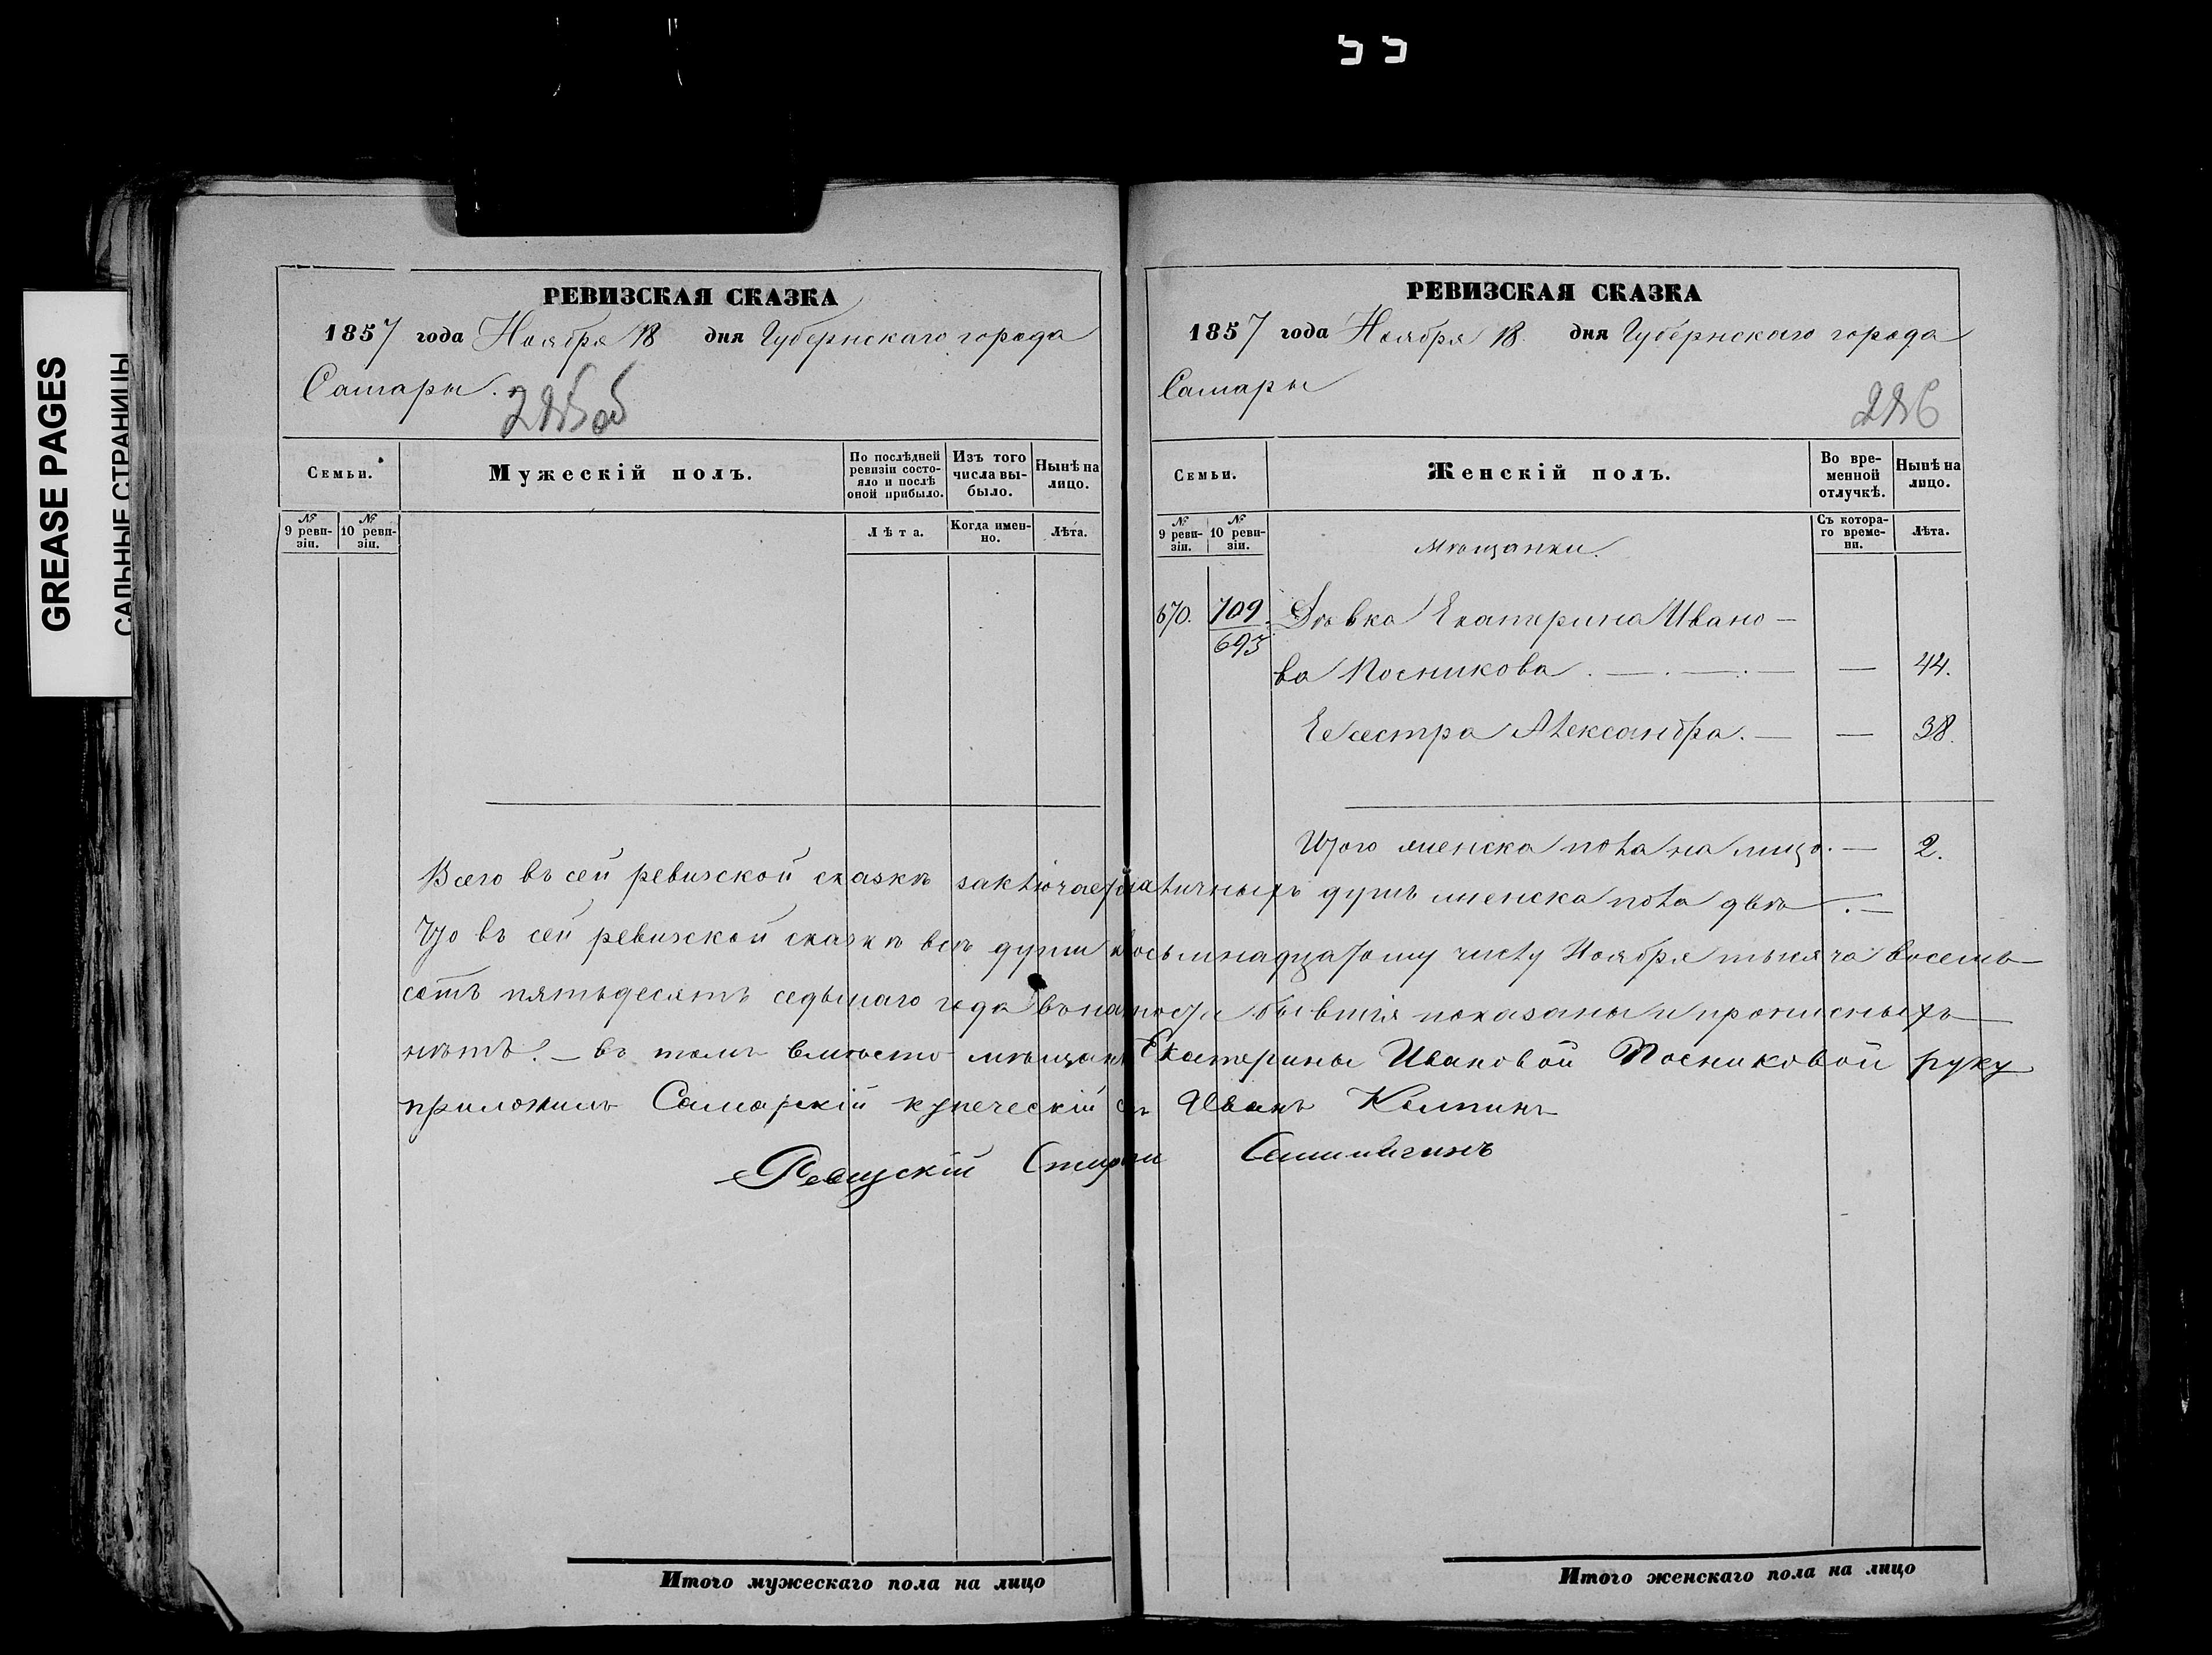 GREASE PAGES
САЛЬНЫЕ СТРАНИЦЫ
РЕВИЗСКАЯ СКАЗКА
1857 года Ноября 18 дня Губернскаго города
Самары.
285 об
Семьи.
Мужескій полъ.
По послѣдней ревизіи состояло и послѣ оной прибыло.
Изъ того числа выбыло.
Нынѣ на лицо.
№ 9 ревизіи.
№ 10 ревизіи.
Лѣта.
Когда именно.
Лѣта.
РЕВИЗСКАЯ СКАЗКА
1857 года Ноября 18 дня Губернскаго города
Самары
286
Семьи.
Женскій полъ.
Во временной отлучкѣ.
Нынѣ на лицо.
№ 9 ревизіи.
№ 10 ревизіи.
Мѣщанки.
Съ котораго времени.
Лѣта.
670. 709 Дѣвка Екатерина Ивано-
693
ва Посникова — 44.
Ее сестра Александра. — — 38.
Итого женска пола на лицо. — 2.
Всего въ сей ревизской сказкѣ заключается наличныхъ душъ женска пола двѣ. —
Что въ сей ревизской сказкѣ всѣ души к восьмнадцатому числу Ноября тысяча восемь
сотъ пятьдесятъ седьмаго года въ наличности бывшія показаны и прописныхъ
нѣтъ. — въ томъ вмѣсто мѣщанк Екатерины Ивановой Посниковой руку
приложилъ Самарскій купеческій Иванъ
Итого мужескаго пола на лицо
Итого женскаго пола на лицо